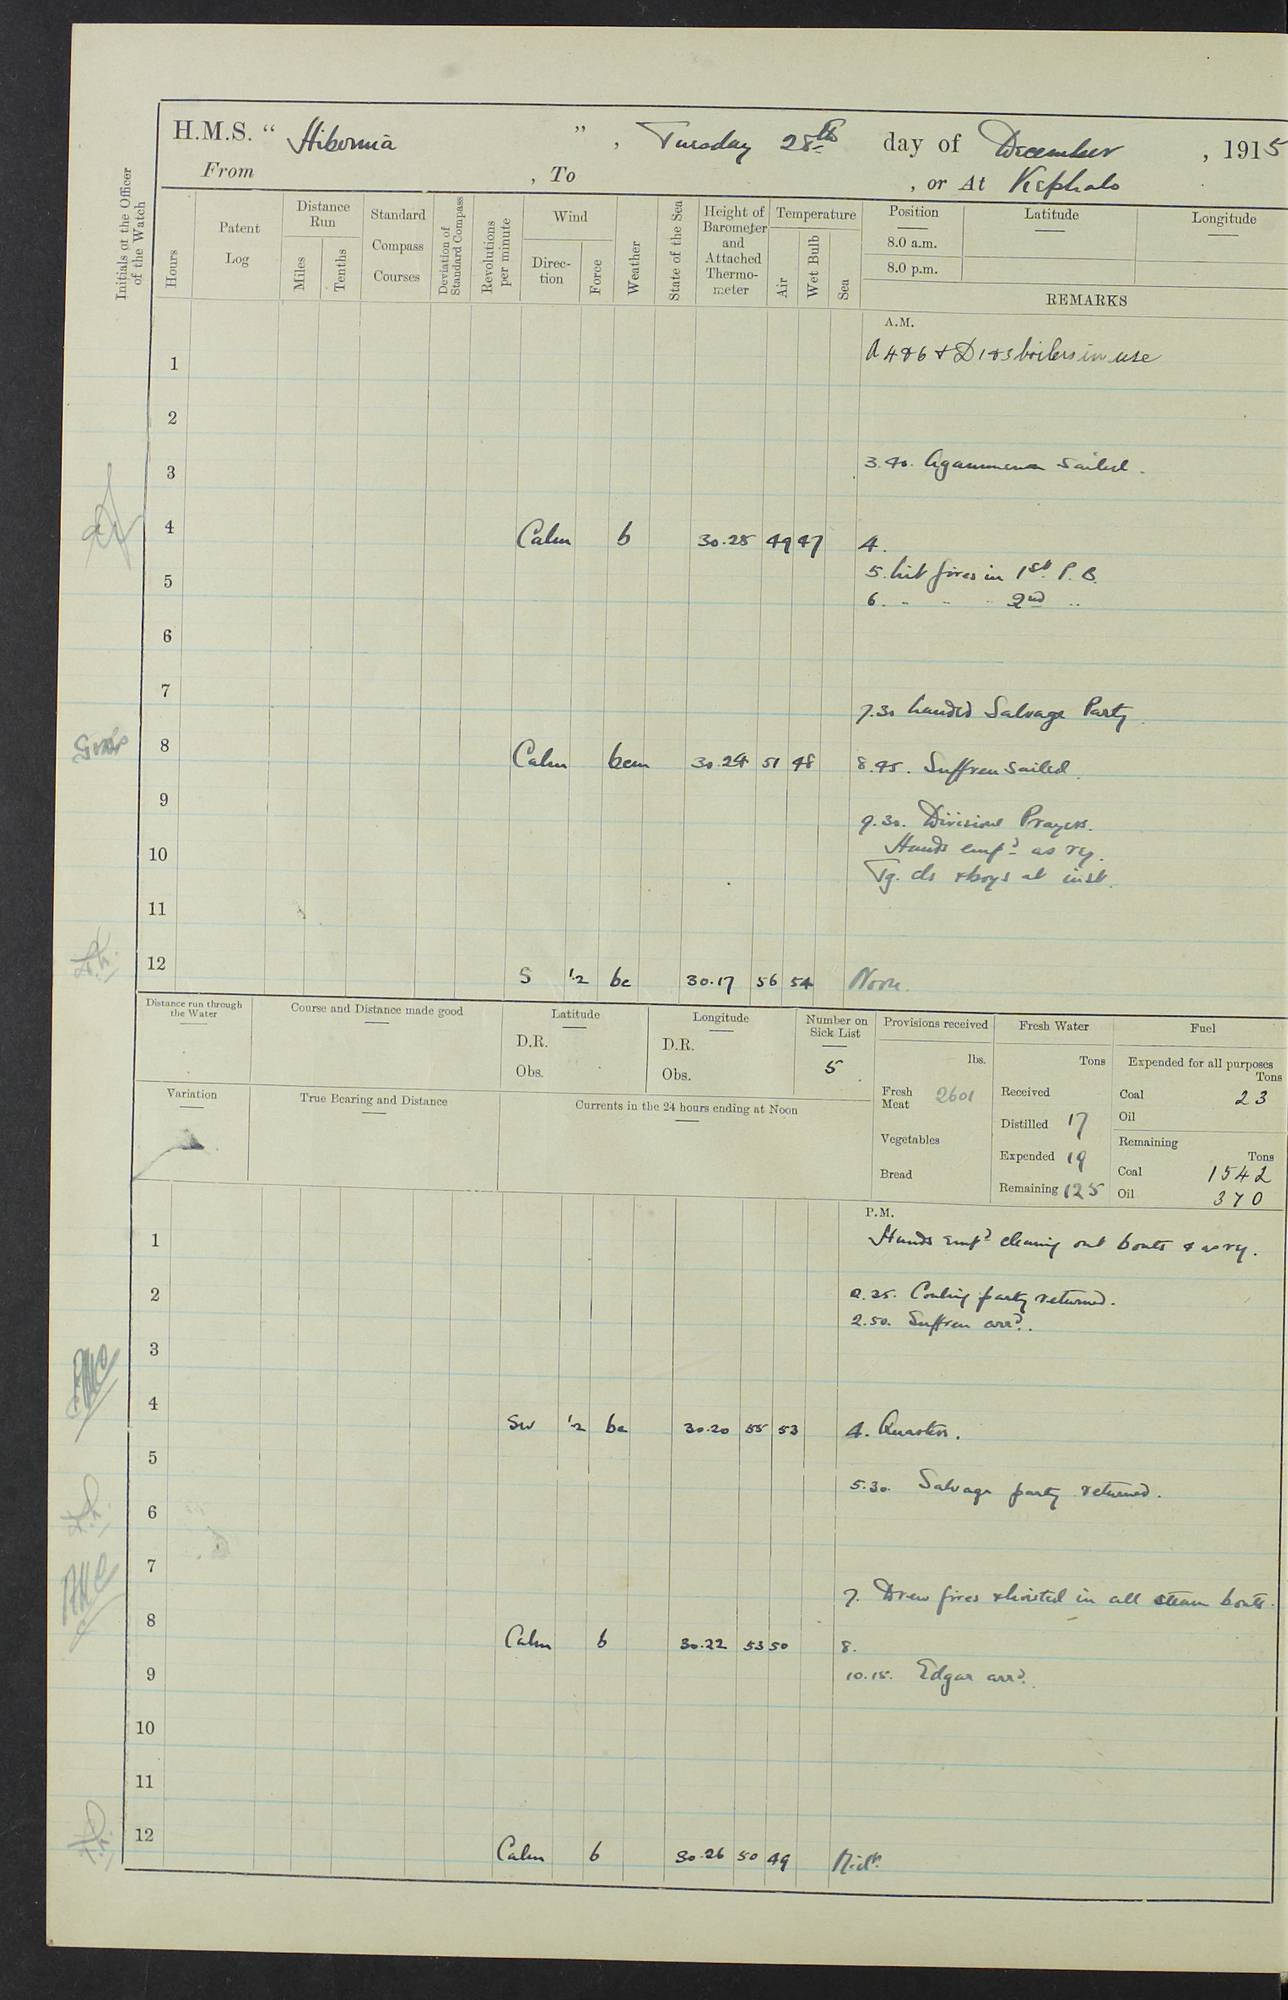 H.M.S. “ Hibernia ” , Tuesday 28th day of December , 1915
From , To , or At Kephalo
Initials of the Officer of the Watch
Hours
Patent Log
Distance Run
Miles
Tenths
Standard Compass Courses
Deviation of Standard Compass
Revolutions per minute
Wind
Direction
Force
Weather
State of the Sea
Height of Barometer and Attached Thermometer
Temperature
Air
Wet Bulb
Sea
Position Latitude Longitude
8.0 a.m.
8.0 p.m.
REMARKS
A.M.
1 A 4 & 6 + D 1 & 3 boilers in use
2
3 3.40. Agamemnon sailed.
4 Calm b 30.25 49 47 4.
5 5. Lit fires in 1st P.B.
6. " " " 2nd "
6
7 7.30 Landed Salvage Party
8 Calm bcm 30.24 51 48 8.45. Suffren sailed.
9 9.30. Divisions Prayers.
10 Hands emp'd as ry.
Tg. cls & boys at inst.
11
12 S 1/2 bc 30.17 56 54 Noon.
Distance run through the Water
Course and Distance made good
Latitude
D.R.
Obs.
Longitude
D.R.
Obs.
Number on Sick List
5
Provisions received
lbs.
Fresh Meat 2601
Vegetables
Bread
Fresh Water
Tons
Received
Distilled 17
Expended 19
Remaining 125
Fuel
Expended for all purposes
Tons
Coal 23
Oil
Remaining
Tons
Coal 1542
Oil 370
Variation
True Bearing and Distance
Currents in the 24 hours ending at Noon
P.M.
1 Hands emp'd cleaning out boats & as ry.
2 2.25. Coaling party returned.
2.50. Suffren arr'd.
3
4 SW 1/2 bc 30.20 55 53 4. Quarters.
5 5.30. Salvage party returned.
6
7 7. Drew fires & hoisted in all steam boats.
8 Calm b 30.22 53 50 8.
9 10.15. Edgar arr'd.
10
11
12 Calm b 30.26 50 49 Midt.